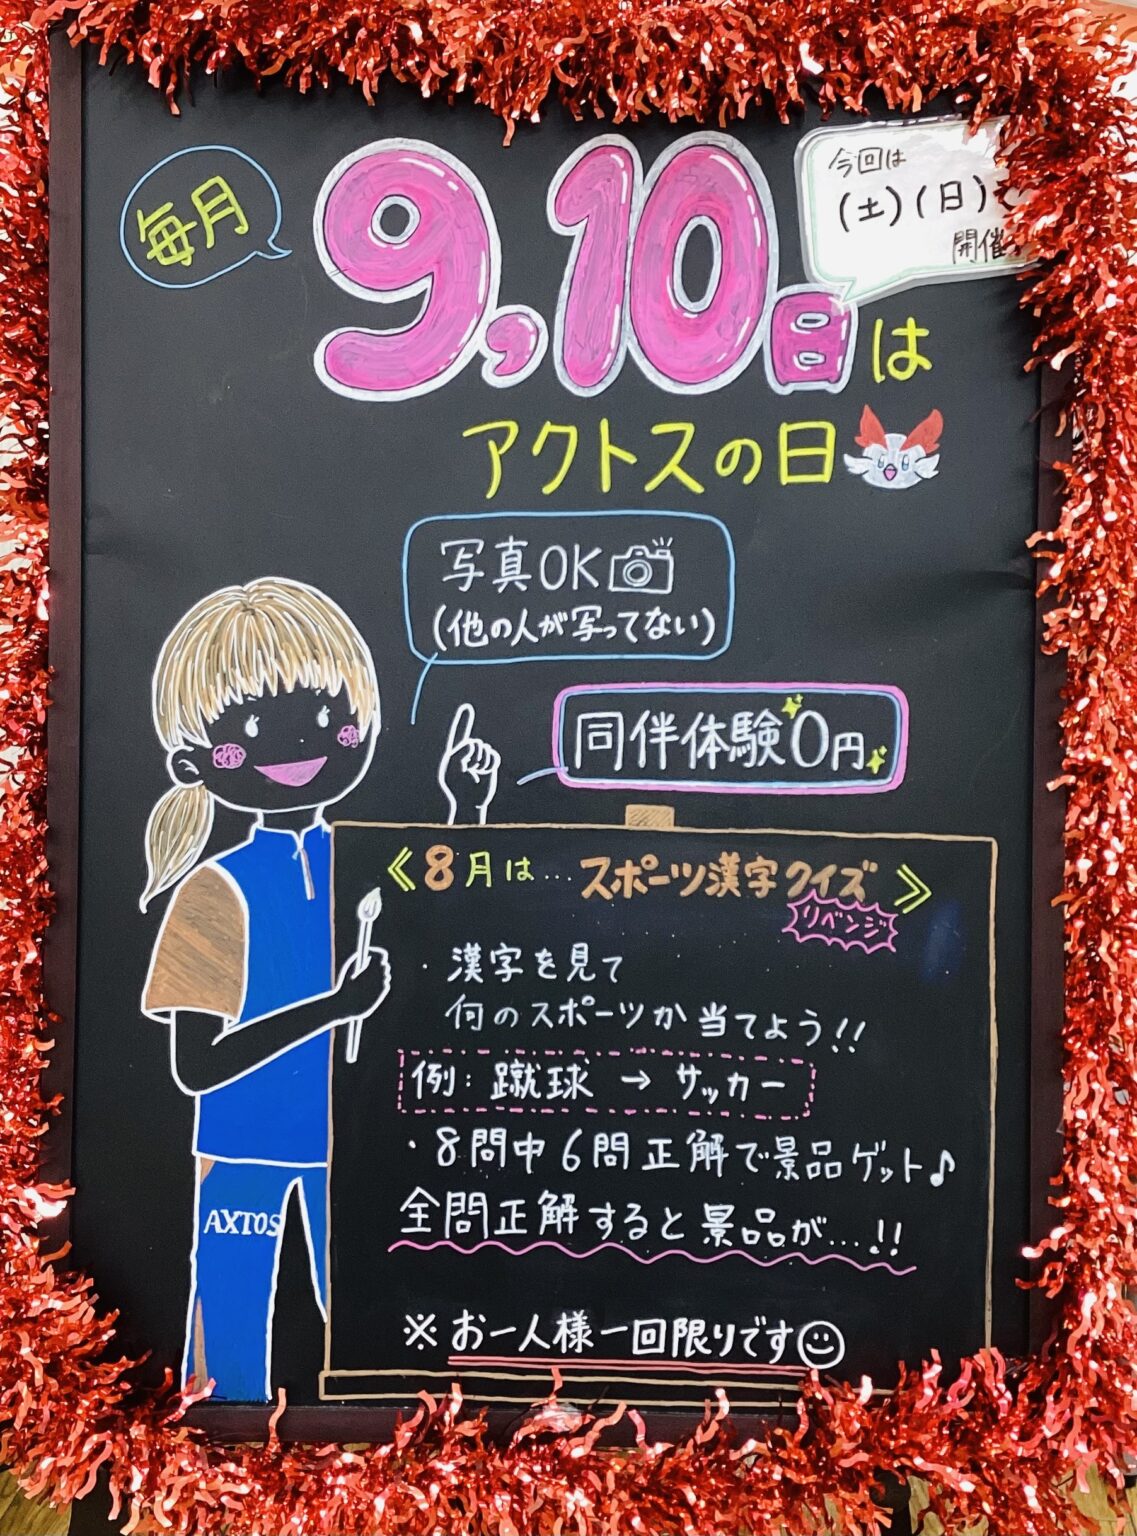 毎月
9,10日は
今回は
(土)(日)
開催
アクトスの日
写真OK
(他の人が写ってない)
同伴体験0円
《8月は…スポーツ漢字クイズ》
リベンジ
・漢字を見て
何のスポーツか当てよう!!
例:蹴球→サッカー
・8問中6問正解で景品ゲット♪
全問正解すると景品が…!!
※お一人様一回限りです
AXTOS